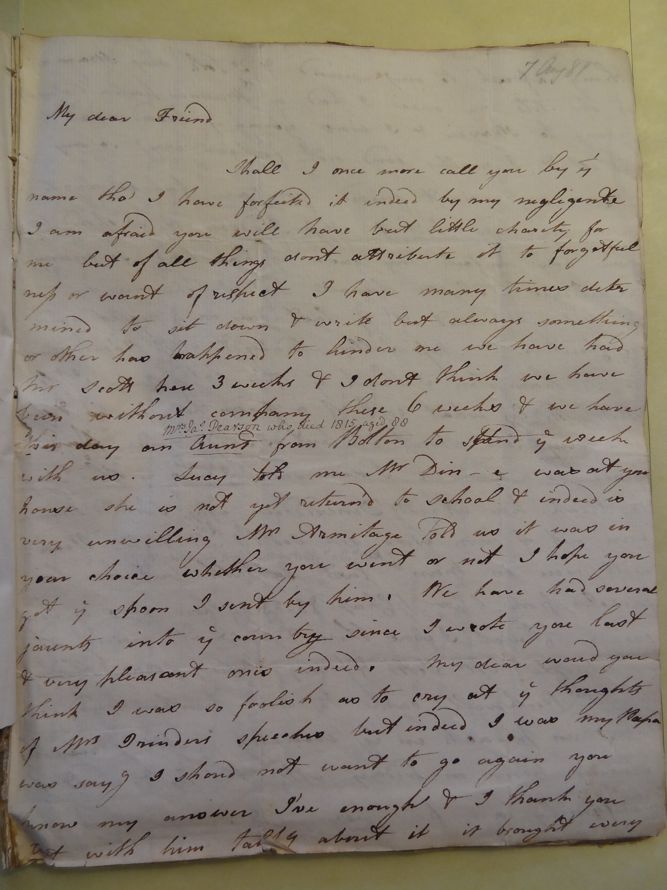 7 Aug 81
My dear Friend
Shall I once more call you by yͤ
name tho' I have forfeited it indeed by my negligence
I am afraid you will have but little charity for
me but of all things dont attribute it to forgetful
ness or want of respect I have many times deter
mined to sit down & write but always something
or other has happened to hinder me we have had
Mr Scott here 3 weeks & I dont think we have
been without company these 6 weeks & we have
Mrs Jas. Pearson who died 1815, aged 88
this day an Aunt from Bolton to spend yͤ week
with us. Lucy told me Mr was at your
house she is not yet returned to school & indeed is
very unwilling Mrs Armitage told us it was in
your choice whether you went or not I hope you
got yͤ spoon I sent by him. We have had several
jaunts into yͤ country since I wrote you last
& very pleasant ones indeed. My dear woud you
think I was so foolish as to cry at yͤ thoughts
of Mrs Grinders speeches but indeed I was my Papa
was sayg I shoud not want to go again you
know my answer I've enough & I thank you
but with him talkg about it it brought every